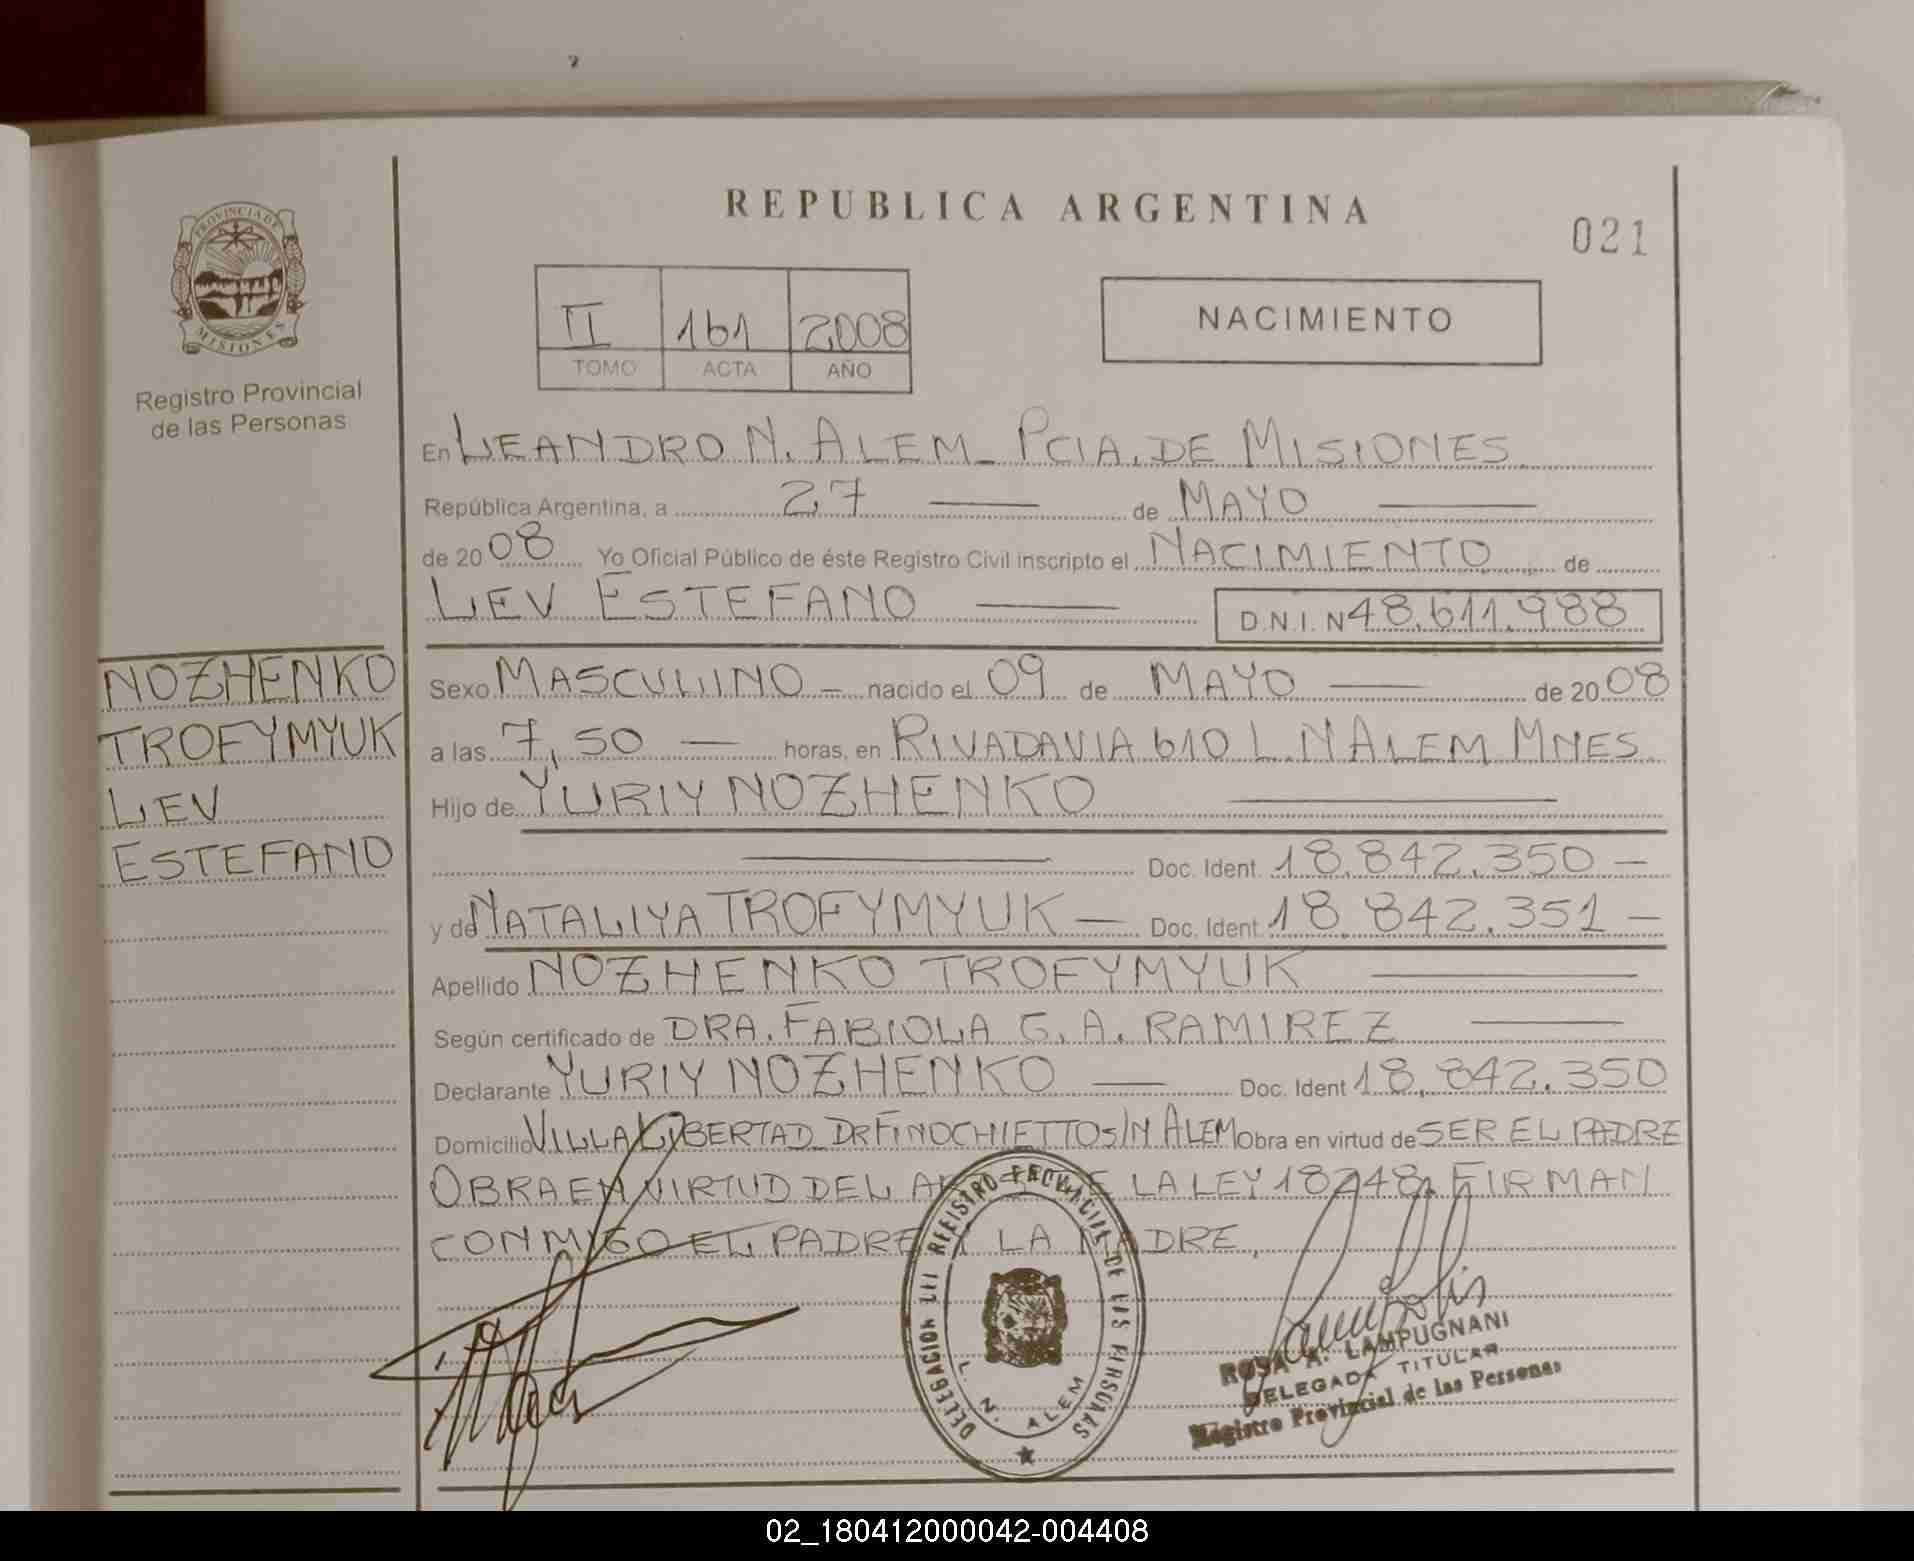 REPUBLICA ARGENTINA
021
PROVINCIA DE
MISIONES
Registro Provincial
de las Personas
II 161 2008
TOMO ACTA AÑO
NACIMIENTO
En LEANDRO N. ALEM - PCIA. DE MISIONES
República Argentina, a 27 de MAYO
de 2008 Yo Oficial Público de éste Registro Civil inscripto el NACIMIENTO de
LEV ESTEFANO D.N.I. N 48.611.988
NOZHENKO
TROFYMYUK
LEV
ESTEFANO
Sexo MASCULINO - nacido el 09 de MAYO de 2008
a las 7,50 horas, en RIVADAVIA 610 L.N ALEM MNES.
Hijo de YURIY NOZHENKO
Doc. Ident. 18.842.350 -
y de NATALIYA TROFYMYUK - Doc. Ident. 18.842.351 -
Apellido NOZHENKO TROFYMYUK
Según certificado de DRA. FABIOLA G. A. RAMIREZ
Declarante YURIY NOZHENKO Doc. Ident 18.842.350
Domicilio VILLA LIBERTAD DR FINOCHIETTO S/N ALEM Obra en virtud de SER EL PADRE
OBRA EN VIRTUD DEL LA LEY 18248. FIRMAN
CONMIGO EL PADRE Y LA MADRE.
DELEGACION DEL REGISTRO PROVINCIAL DE LAS PERSONAS
L. N. ALEM
ROSA A. LAMPUGNANI
DELEGADA TITULAR
Registro Provincial de las Personas
02_180412000042-004408